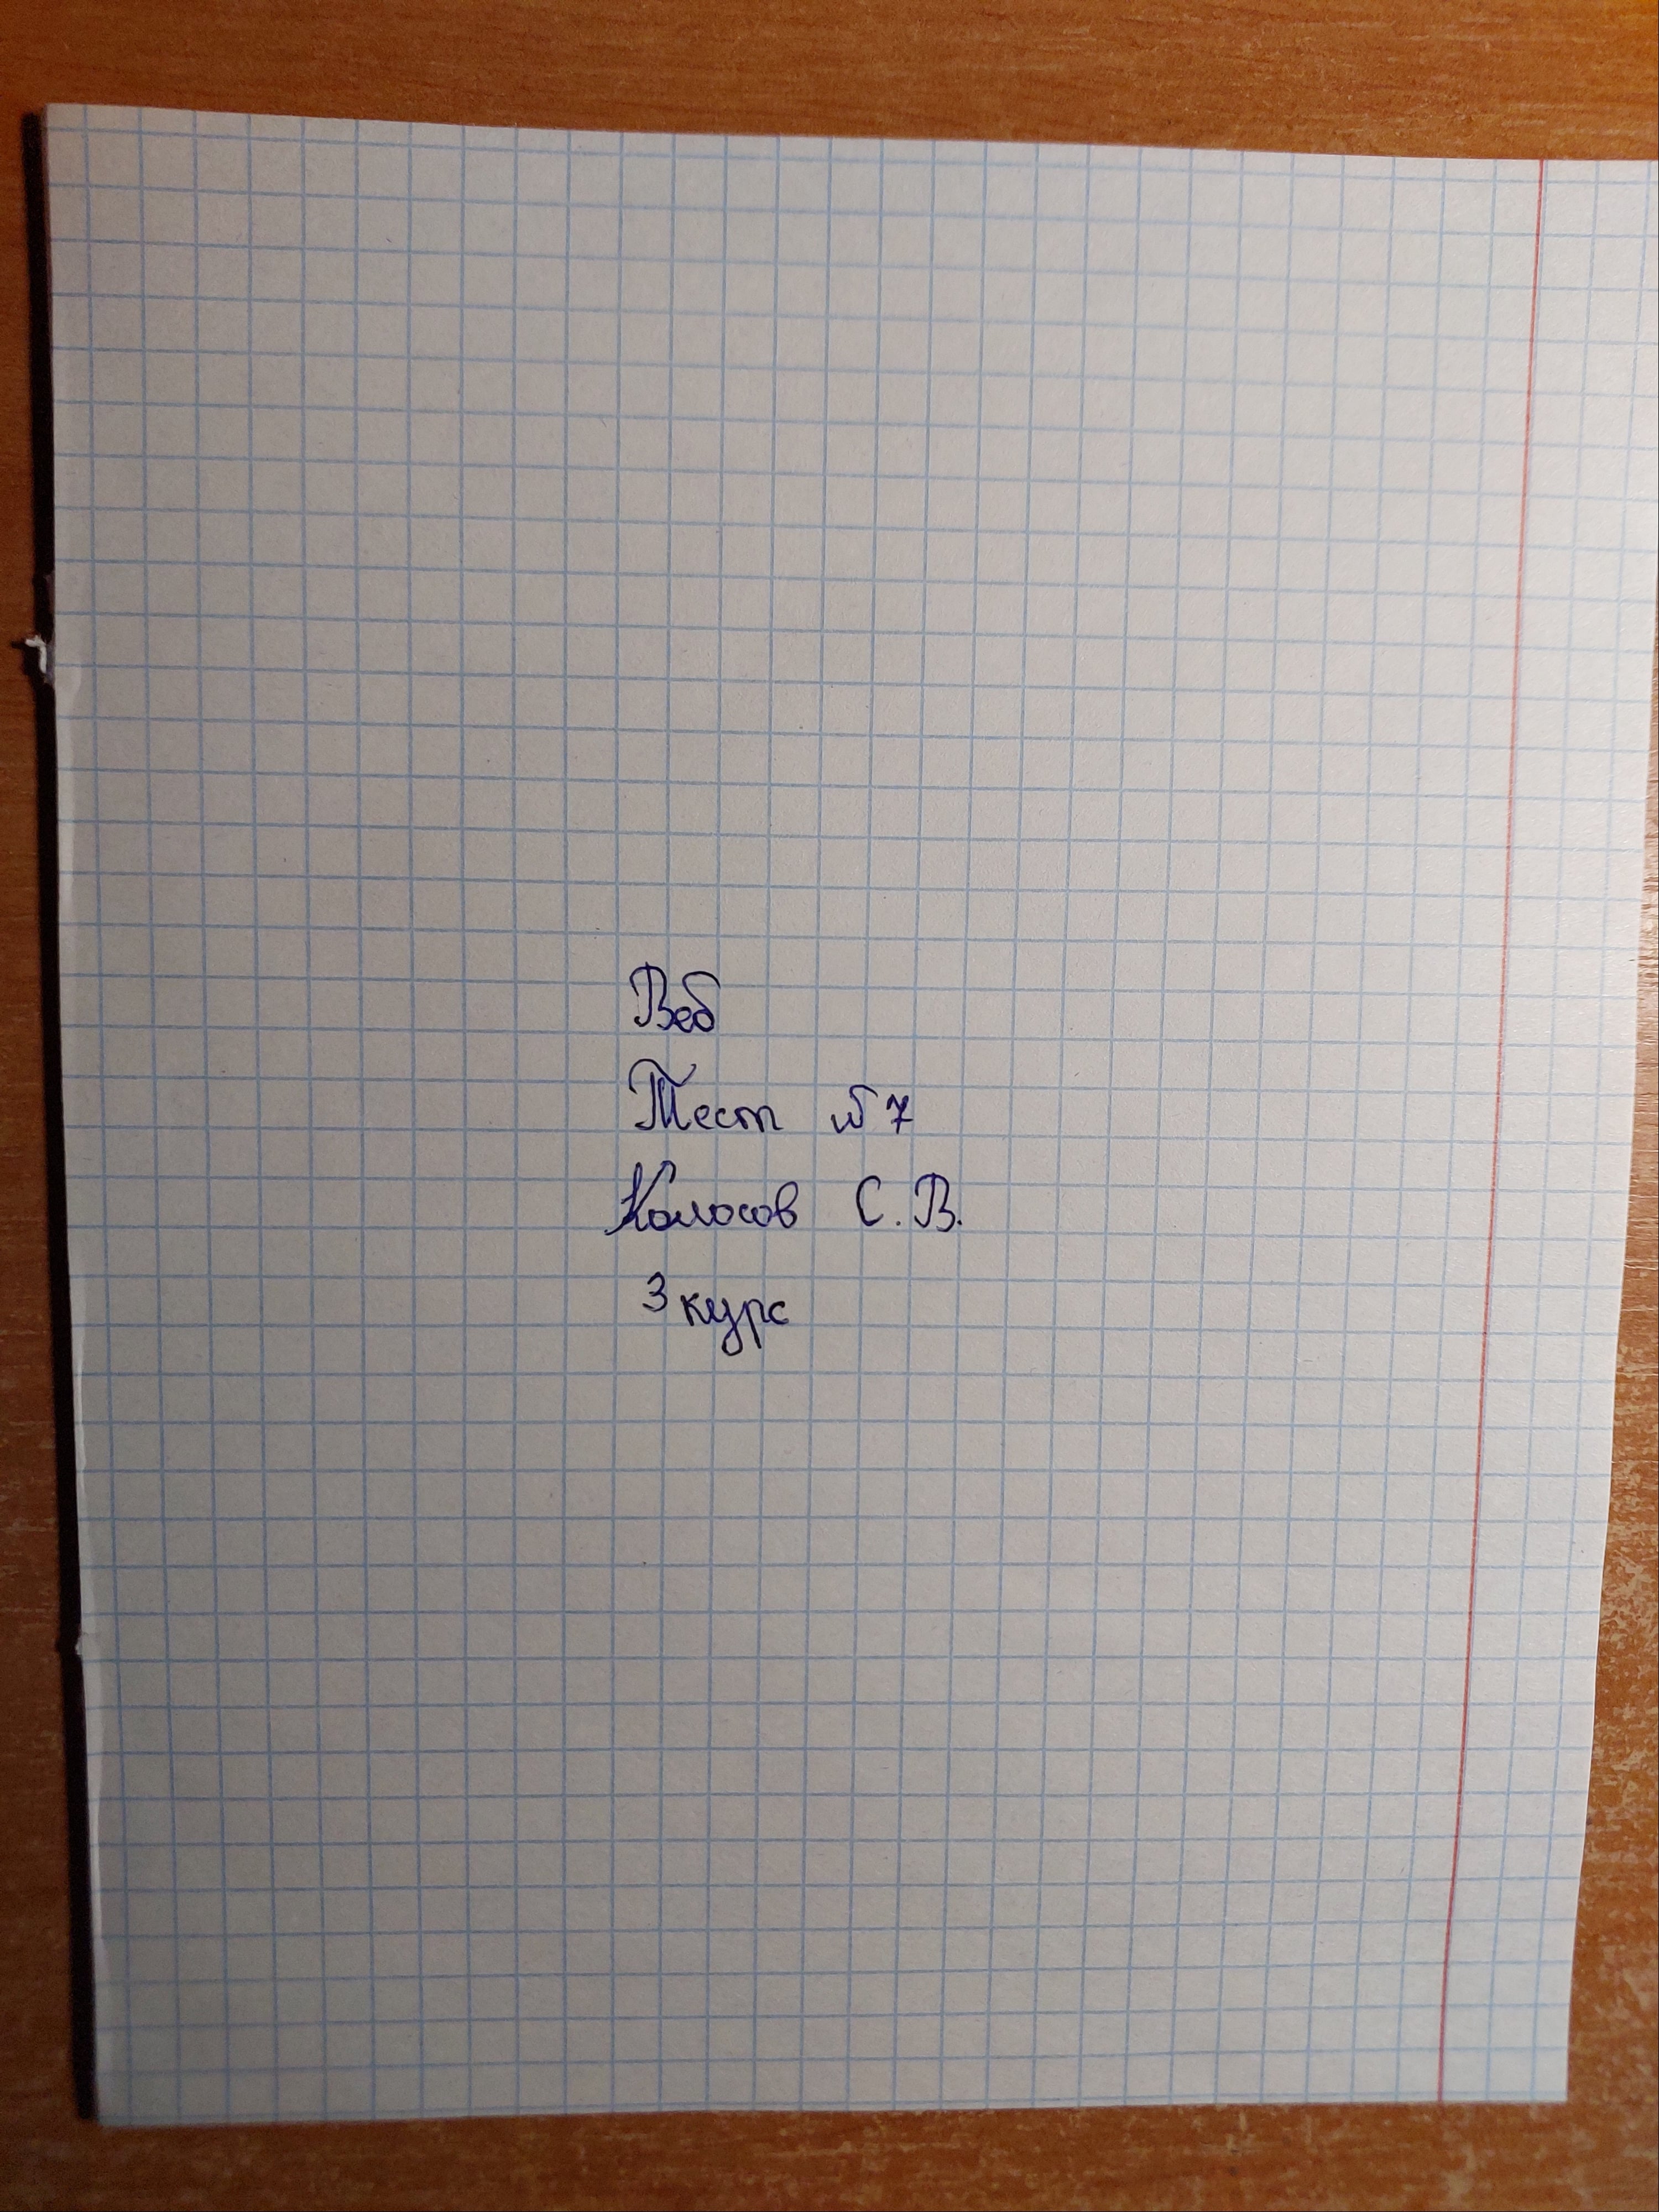 Веб
Тест №7
Колосов С.В.
3 курс